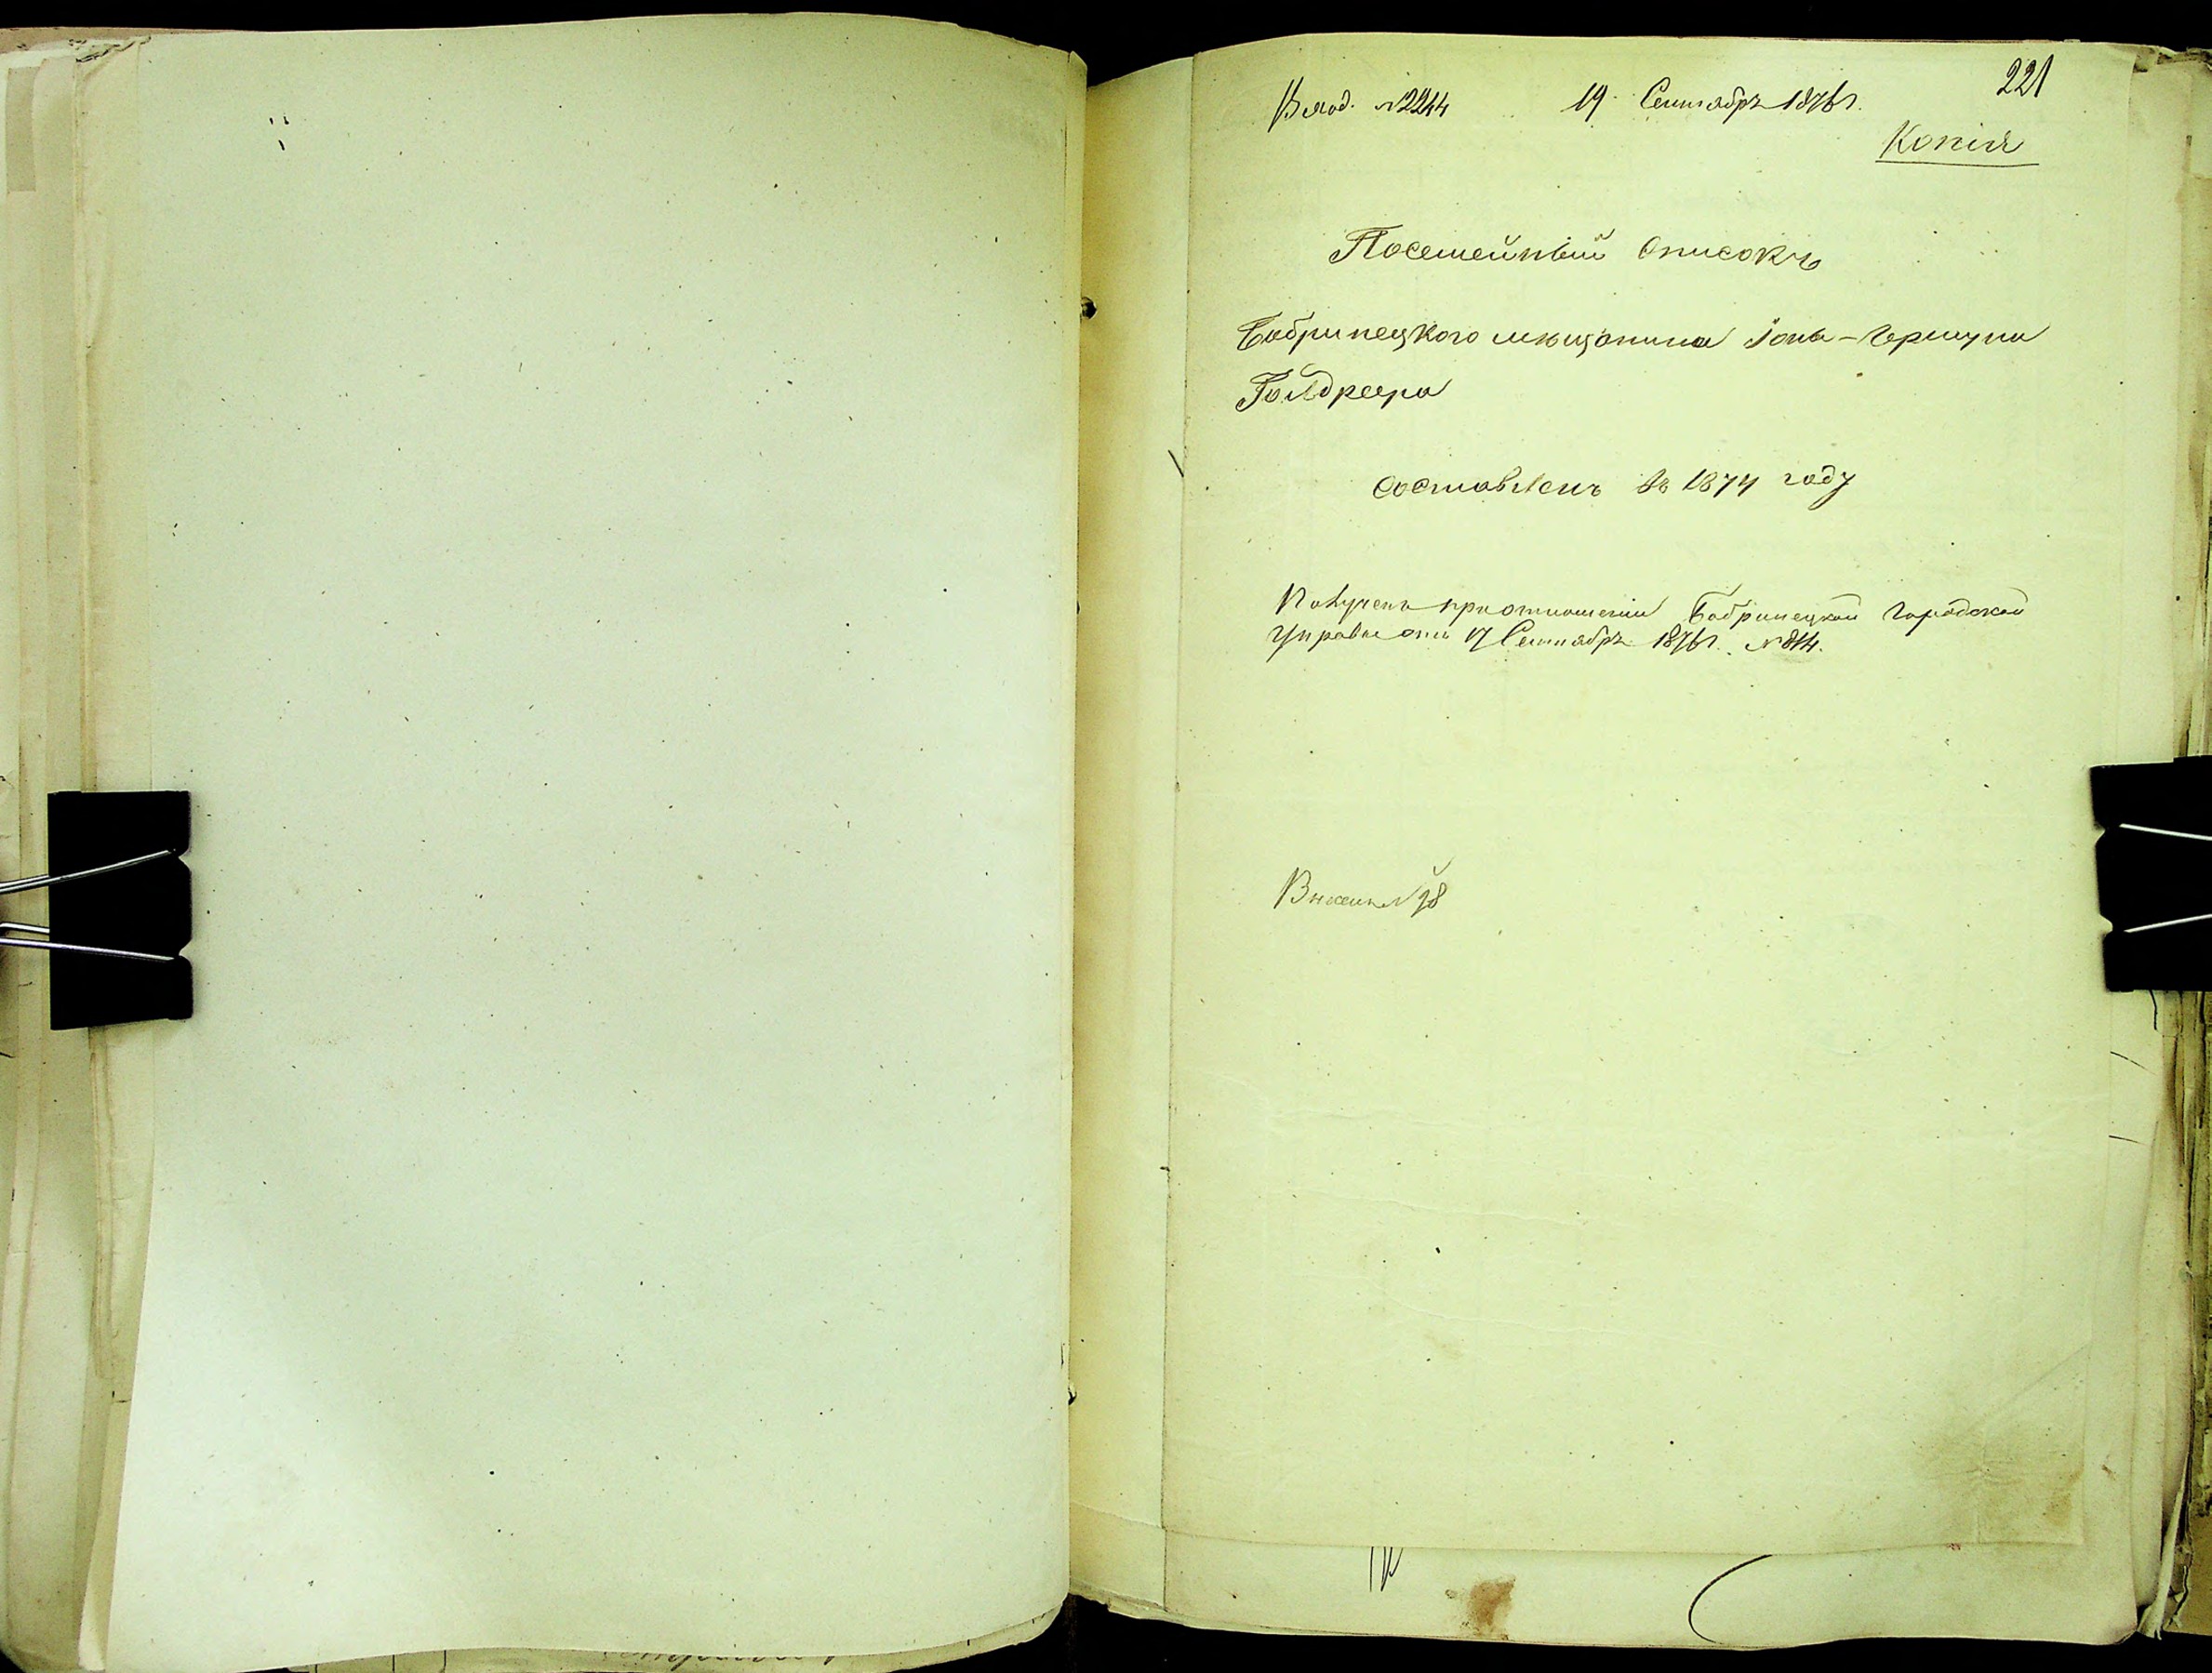 221
Вход. №2244 19 Сентября 1876 г.
Копія
Посемейный Списокъ
Бобринецкого мещанина Іонь-Гершуна
Голдреера
Составленъ въ 1874 году
Полученъ при отношеніи Бобринецкой Городской
Управы отъ 17 Сентября 1876 г. № 814.
№ 98